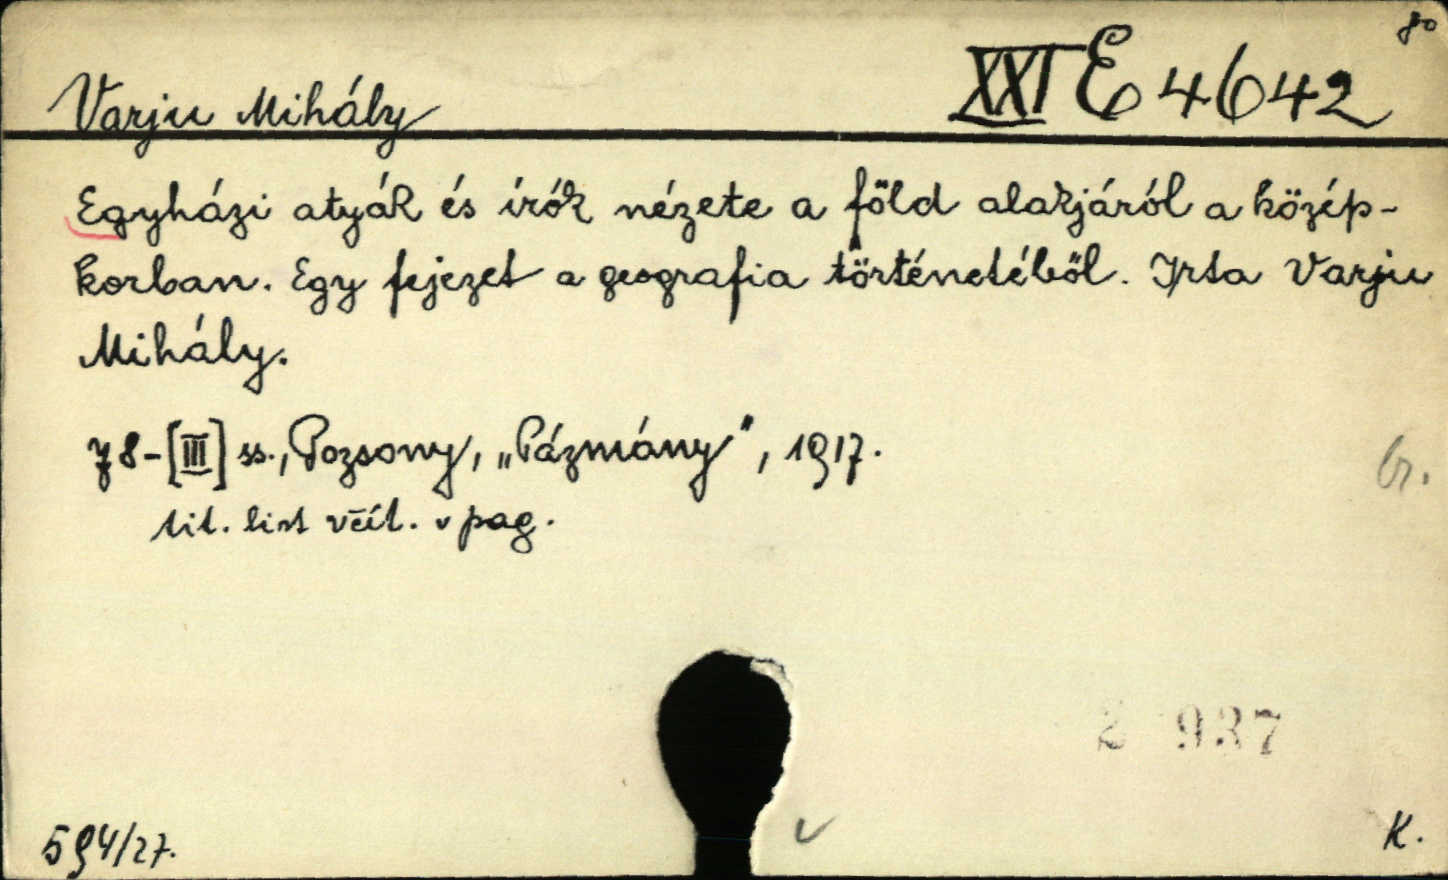 8o
XXI E 4642
Varju Mihály
Egyházi atyák és írók nézete a föld alakjáról a közép-
korban. Egy fejezet a geografia történetéből. Irta Varju
Mihály.
78-[III] ss., Pozsony, „Pázmány", 1917.
br.
tit. list včít. v pag.
2 937
594/27.
K.